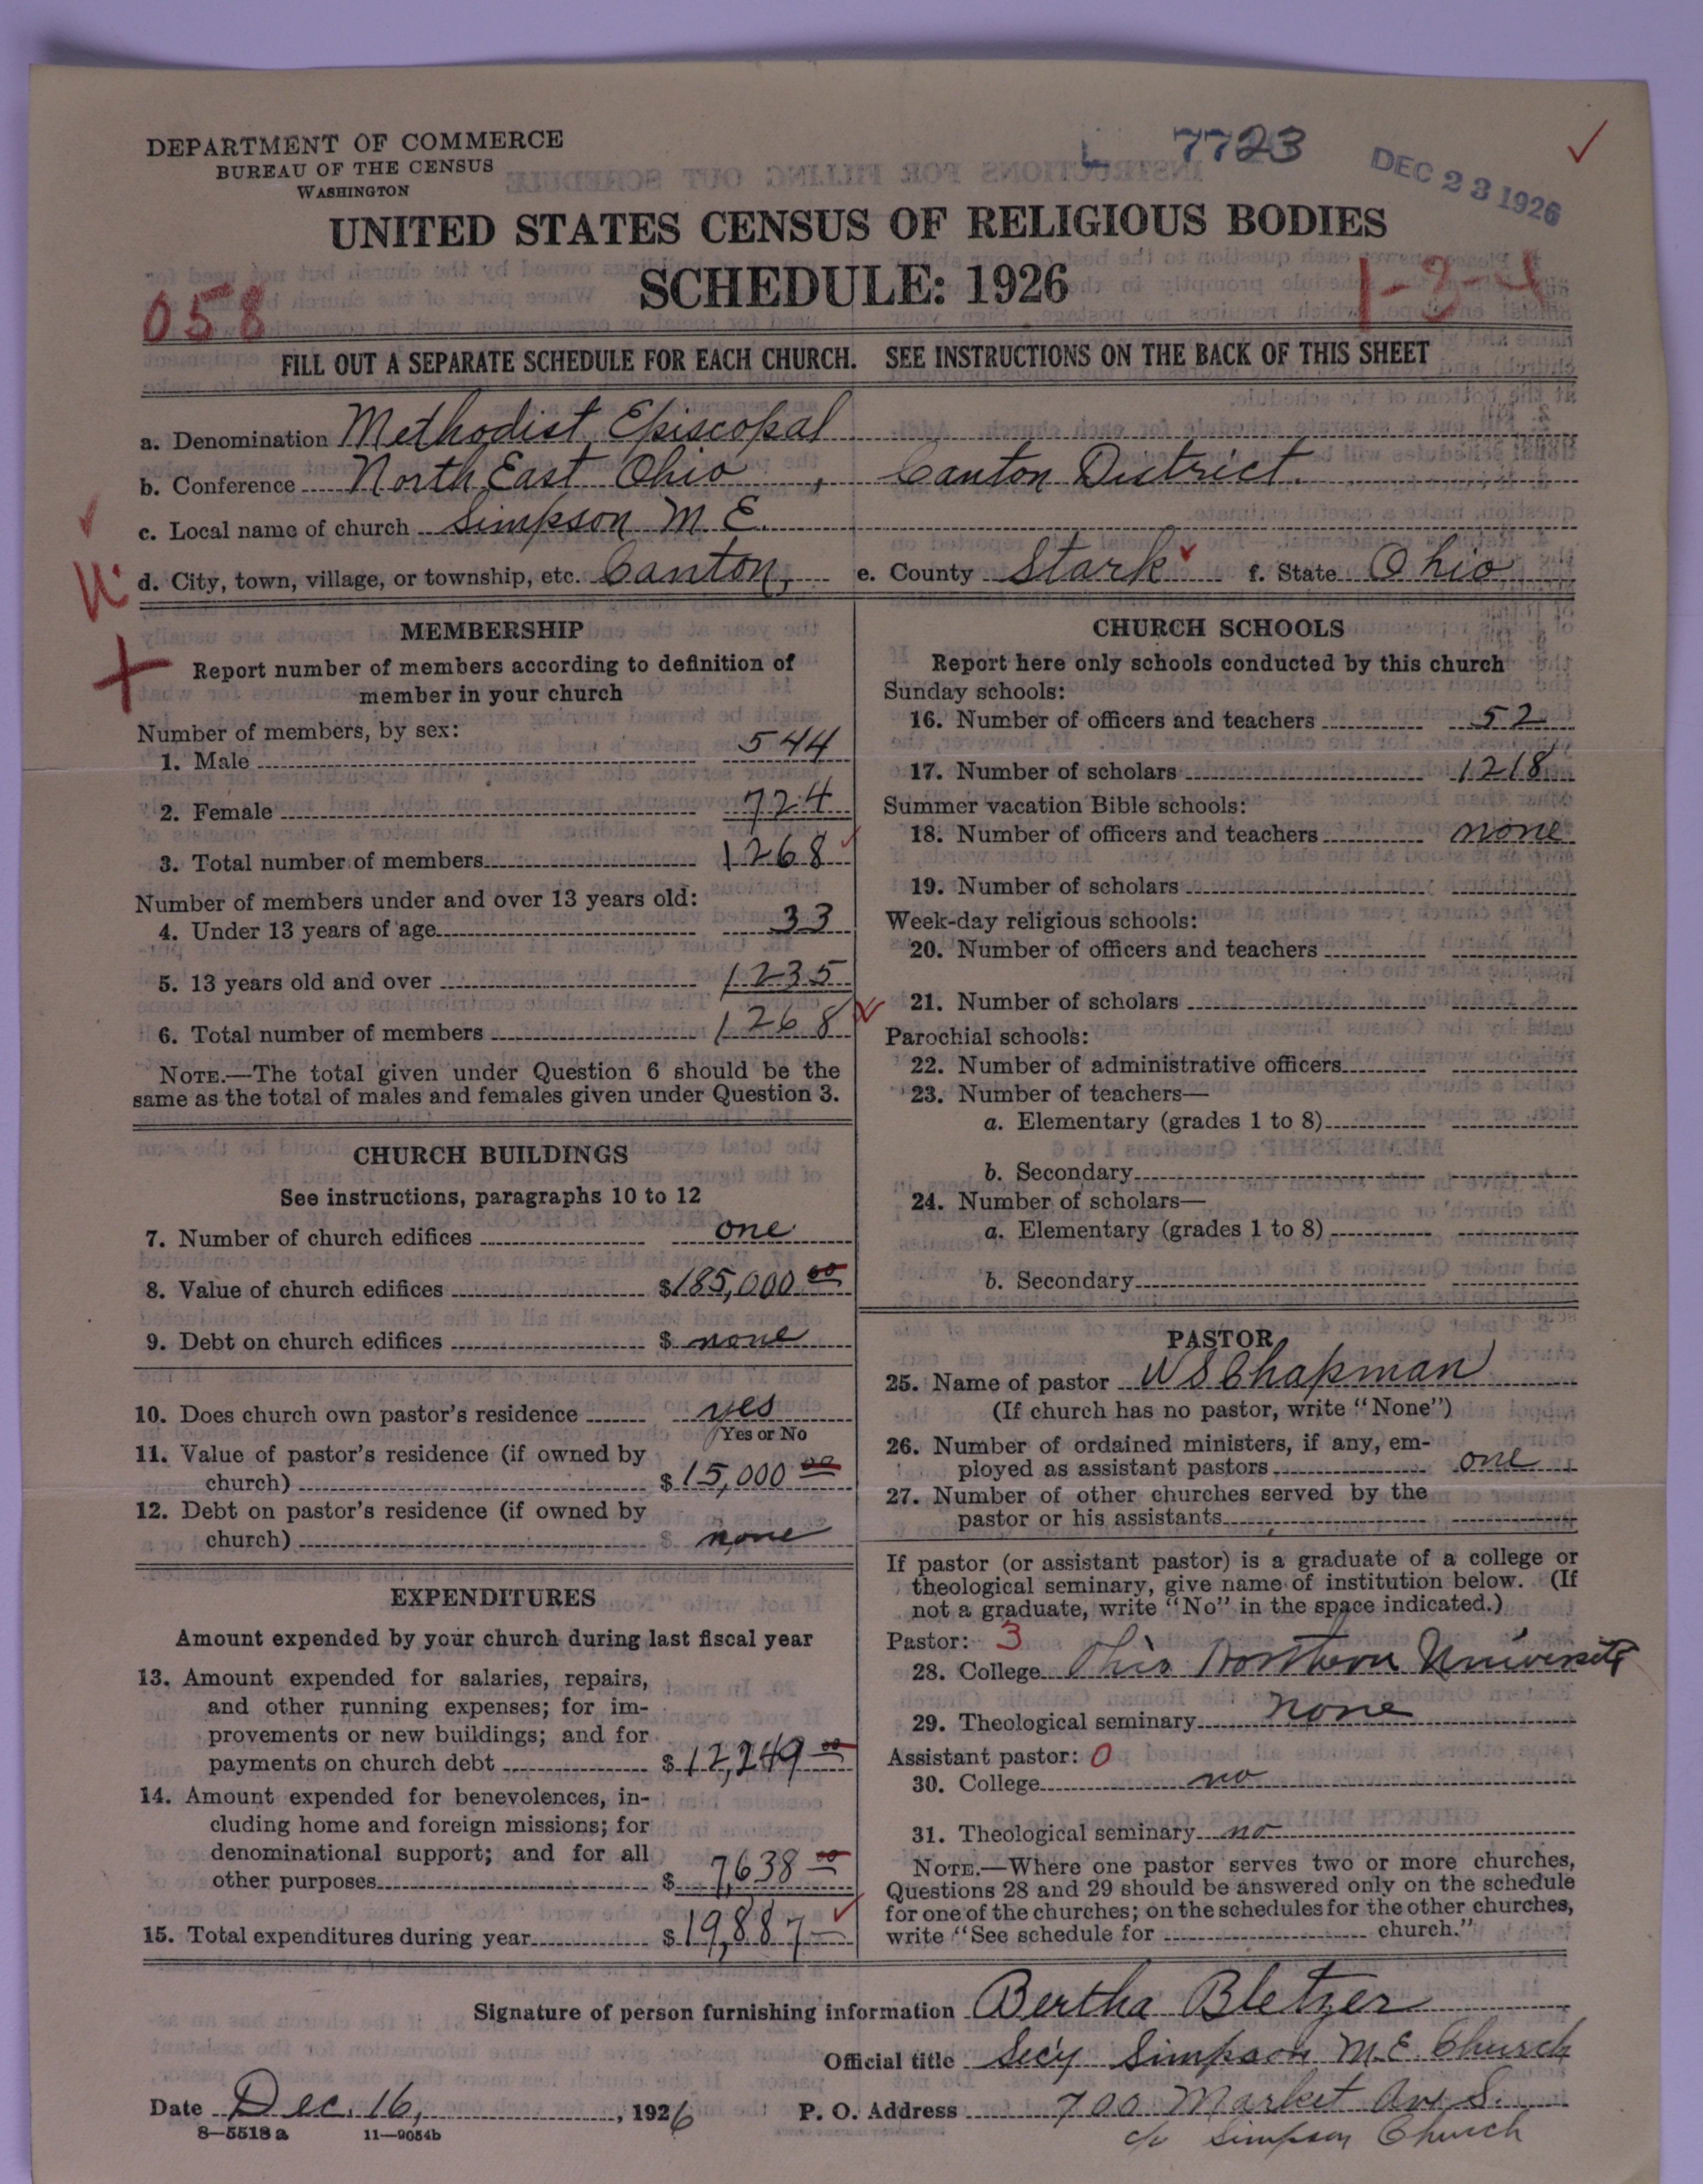 DEPARTMENT OF COMMERCE
BUREAU OF THE CENSUS
WASHINGTON
L 7723
DEC 23 1926
UNITED STATES CENSUS OF RELIGIOUS BODIES
SCHEDULE: 1926
058
1-3-4
FILL OUT A SEPARATE SCHEDULE FOR EACH CHURCH. SEE INSTRUCTIONS ON THE BACK OF THIS SHEET
a. Denomination Methodist Episcopal
b. Conference North East Ohio, Canton District.
c. Local name of church Simpson M E.
d. City, town, village, or township, etc. Canton, e. County Stark f. State Ohio
MEMBERSHIP
Report number of members according to definition of
member in your church
Number of members, by sex:
1. Male 544
2. Female 724
3. Total number of members 1268
Number of members under and over 13 years old:
4. Under 13 years of age 33
5. 13 years old and over 1235
6. Total number of members 1268
NOTE.—The total given under Question 6 should be the
same as the total of males and females given under Question 3.
CHURCH BUILDINGS
See instructions, paragraphs 10 to 12
7. Number of church edifices one
8. Value of church edifices $185,000 00
9. Debt on church edifices $ none
10. Does church own pastor's residence yes
Yes or No
11. Value of pastor's residence (if owned by
church) $15,000 00
12. Debt on pastor's residence (if owned by
church) $ none
EXPENDITURES
Amount expended by your church during last fiscal year
13. Amount expended for salaries, repairs,
and other running expenses; for im-
provements or new buildings; and for
payments on church debt $12,249 00
14. Amount expended for benevolences, in-
cluding home and foreign missions; for
denominational support; and for all
other purposes $ 7,638 00
15. Total expenditures during year $19,887 —
CHURCH SCHOOLS
Report here only schools conducted by this church
Sunday schools:
16. Number of officers and teachers 52
17. Number of scholars 1218
Summer vacation Bible schools:
18. Number of officers and teachers none
19. Number of scholars
Week-day religious schools:
20. Number of officers and teachers
21. Number of scholars
Parochial schools:
22. Number of administrative officers
23. Number of teachers—
a. Elementary (grades 1 to 8)
b. Secondary
24. Number of scholars—
a. Elementary (grades 1 to 8)
b. Secondary
PASTOR
25. Name of pastor W S Chapman
(If church has no pastor, write "None")
26. Number of ordained ministers, if any, em-
ployed as assistant pastors one
27. Number of other churches served by the
pastor or his assistants
If pastor (or assistant pastor) is a graduate of a college or
theological seminary, give name of institution below. (If
not a graduate, write "No" in the space indicated.)
Pastor: 3
28. College Ohio Northern University
29. Theological seminary none
Assistant pastor: 0
30. College no
31. Theological seminary no
NOTE.—Where one pastor serves two or more churches,
Questions 28 and 29 should be answered only on the schedule
for one of the churches; on the schedules for the other churches,
write "See schedule for church."
Signature of person furnishing information Bertha Bletzer
Official title Sec'y Simpson M.E. Church
Date Dec. 16, 1926 P. O. Address 700 Market Ave S.
c/o Simpson Church
8—5518 a 11—9054b